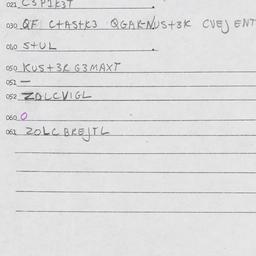 021 CSP1K3T
030 QF C+AS+K3 QGAKNUS+3K CVEJ ENT
040 S+UL
050 KUS+3K G3MAXT
051 —
052 ZOLCVIGL
060 O
061 ZOLC BREJTL